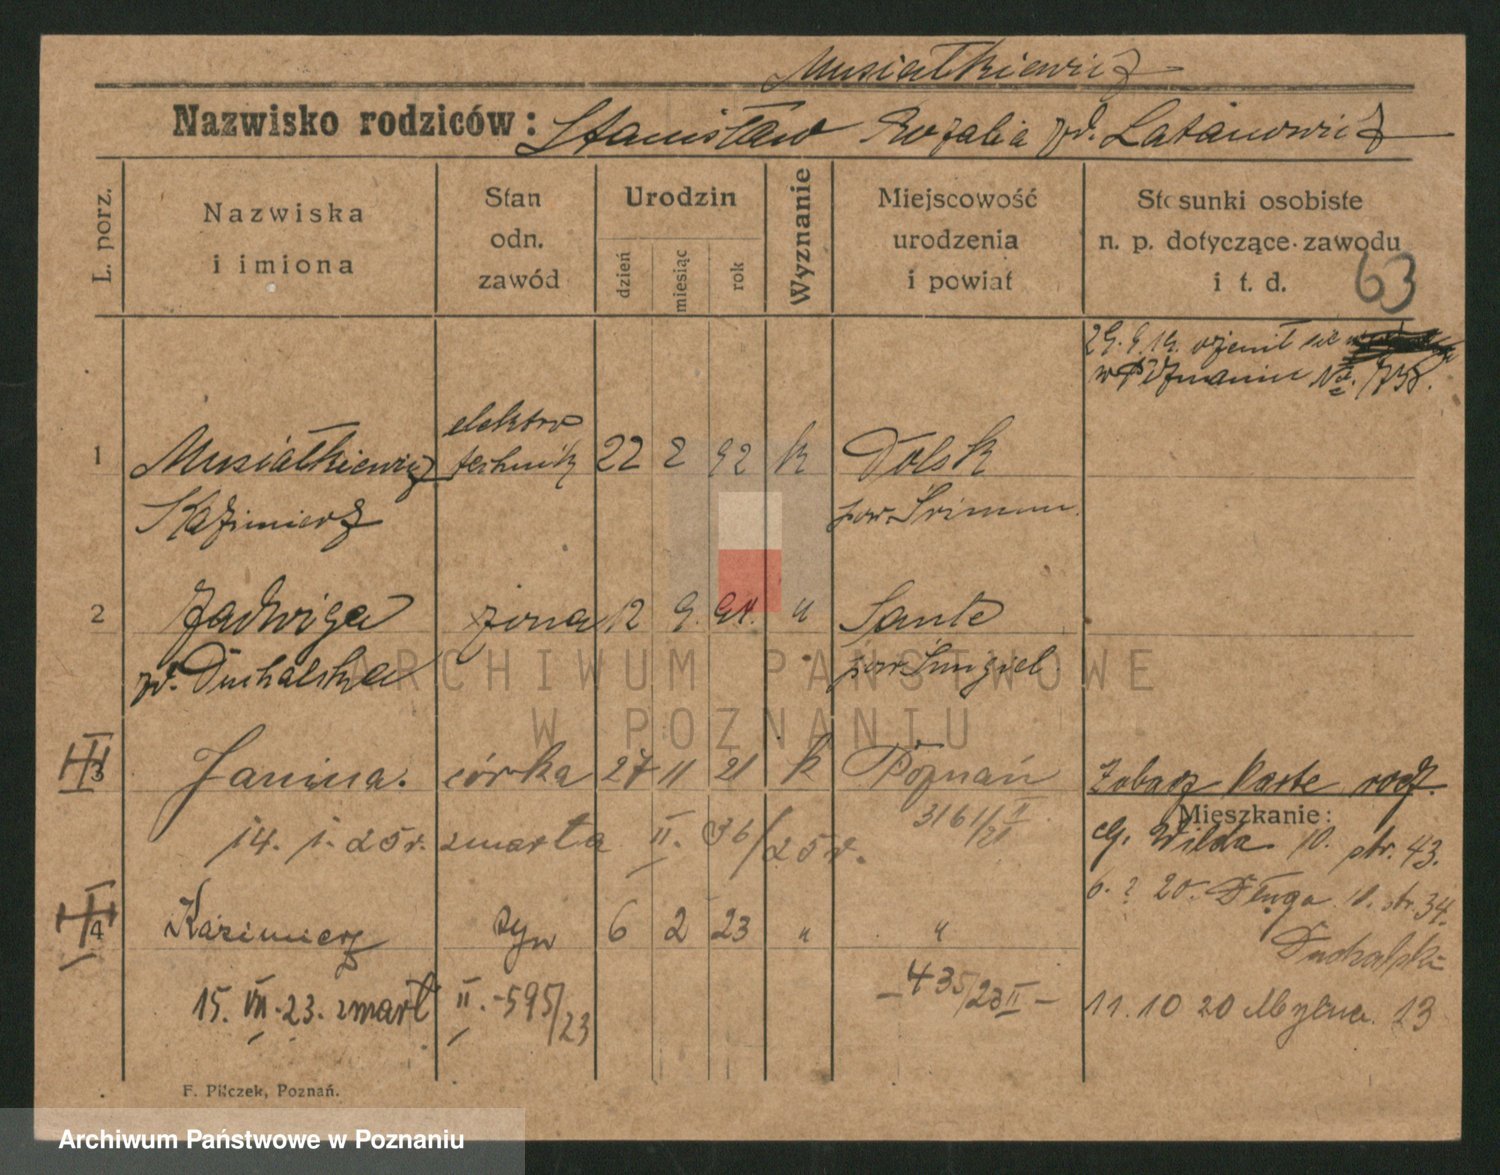 Musiałkiewicz
Nazwisko rodziców: Stanisław Rozalia zd. Latanowicz
L. porz.
Nazwiska
i imiona
Stan
odn.
zawód
Urodzin
dzień
miesiąc
rok
Wyznanie
Miejscowość
urodzenia
i powiat
Stosunki osobiste
n. p. dotyczące zawodu
i t. d.
63
29. 9. 19. ożenił się
w Poznaniu No. 738.
1 Musiałkiewicz elektro technik 22 2 92 k Dolsk
Kazimierz pow. Śrimm.
2 Jadwiga żona 12 9. 94. " Sante
zd. Duchalska pow. Śmigiel
III
3 Janina. córka 27 11 21 k Poznań
3161/21 II
Zobacz kartę rodz.
14. 1. 25 r. zmarła II. 36/25 r.
Mieszkanie:
G. Wilda 10. str. 43.
6. 2 20. Długa 10. str. 34.
Duchalski
III
4 Kazimierz syn 6 2 23 " "
15. VII. 23. zmarł II. -595/23
- 435/23 II -
11. 10 20 Młyńska 13
F. Pilczek, Poznań.
ARCHIWUM PAŃSTWOWE
W POZNANIU
Archiwum Państwowe w Poznaniu